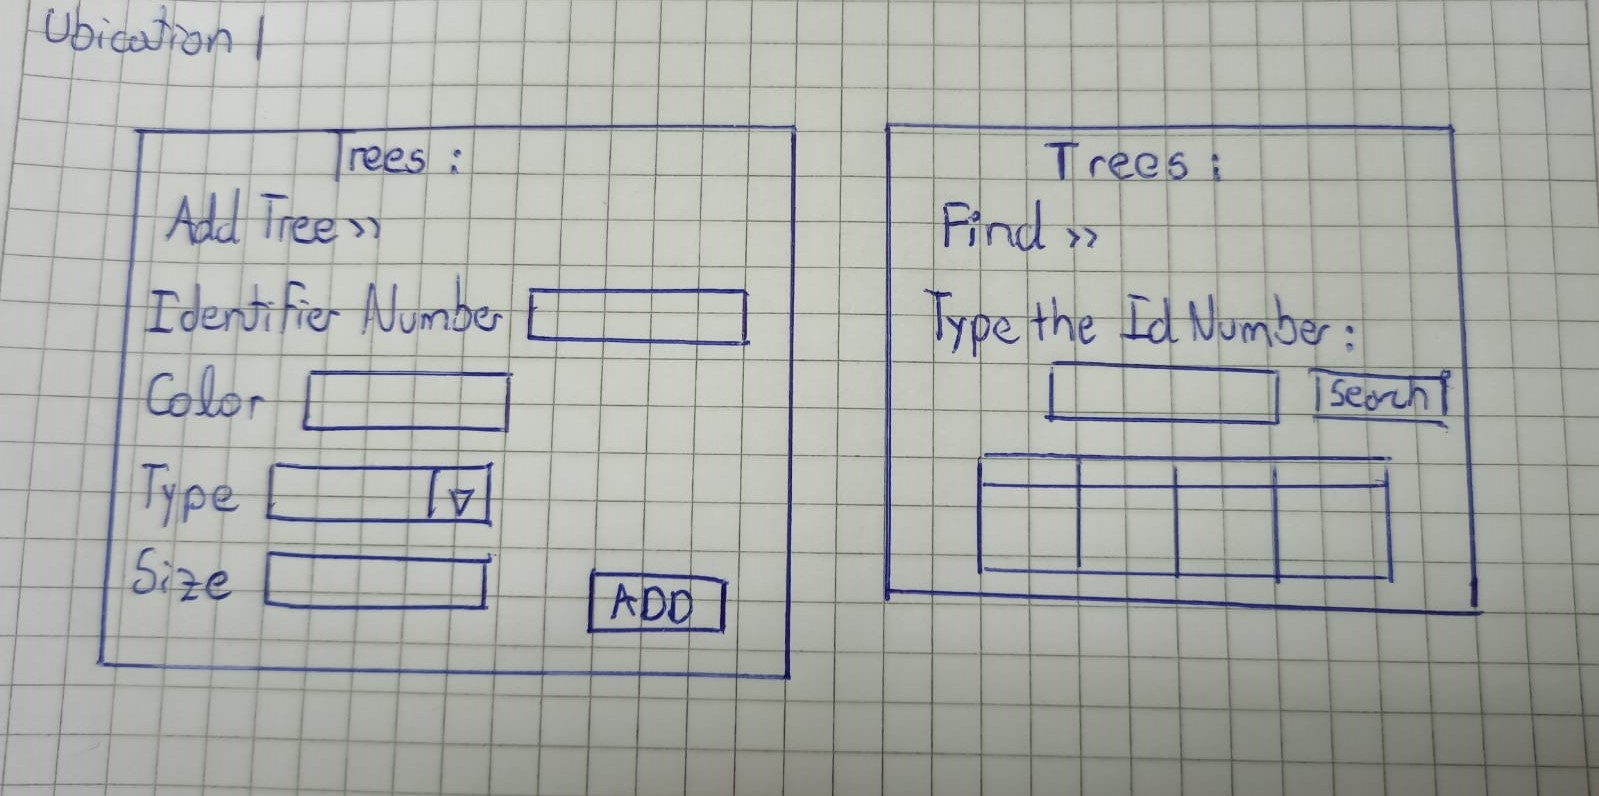 Ubication 1
Trees:
Add Tree >>
Identifier Number
Color
Type
Size
ADD
Trees:
Find >>
Type the Id Number:
Search